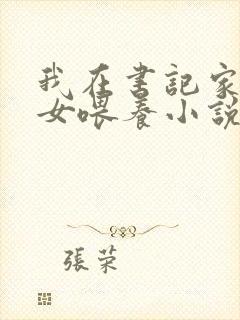 我在書記家
女喂養小說
張榮